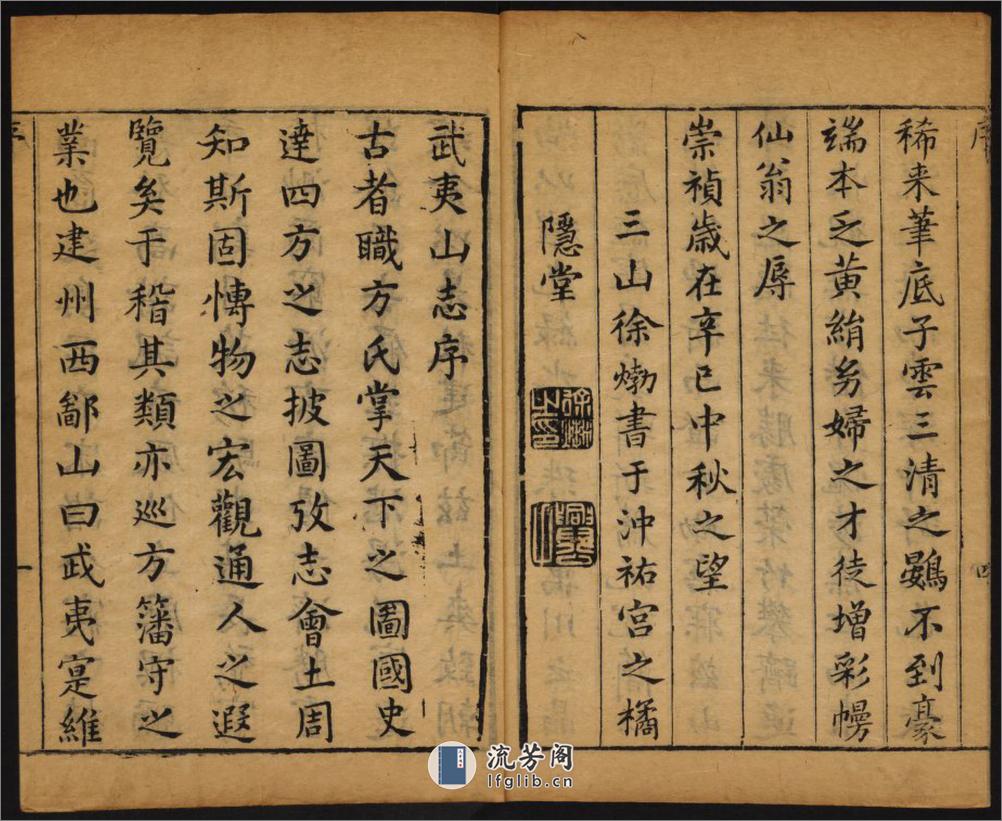 序
四
稀来筆底子雲三清之鷃不到豪
端本乏黃絹㓜婦之才徒增彩幔
仙翁之辱
崇禎歲在辛巳中秋之望
三山徐𤊹書于沖祐宮之橘
隱堂
武夷山志序
古者職方氏掌天下之圖國史
達四方之志披圖攷志會土周
知斯固慱物之宏觀通人之遐
覽矣于稽其類亦巡方籓守之
業也建州西鄙山曰武夷寔維
一
流芳阁
lfglib.cn